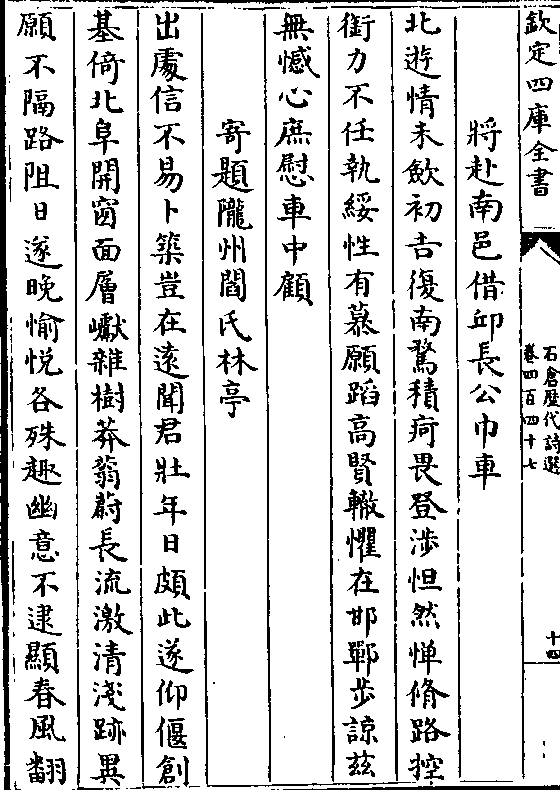 欽定四庫全書
石倉歷代詩選
卷四百四十七
十四
將赴南邑借邱長公巾車
北遊情未歛初吉復南騖積疴畏登涉怛然憚脩路控
銜力不任執綏性有慕願蹈高賢轍懼在邯鄲步諒茲
無憾心庶慰車中顧
寄題隴州閻氏林亭
出處信不易卜築豈在遠聞君壯年日頗此遂仰偃創
基倚北阜開窗面層巘雜樹莽蓊蔚長流激清淺跡異
願不隔路阻日遂晚愉悅各殊趣幽意不逮顯春風翻